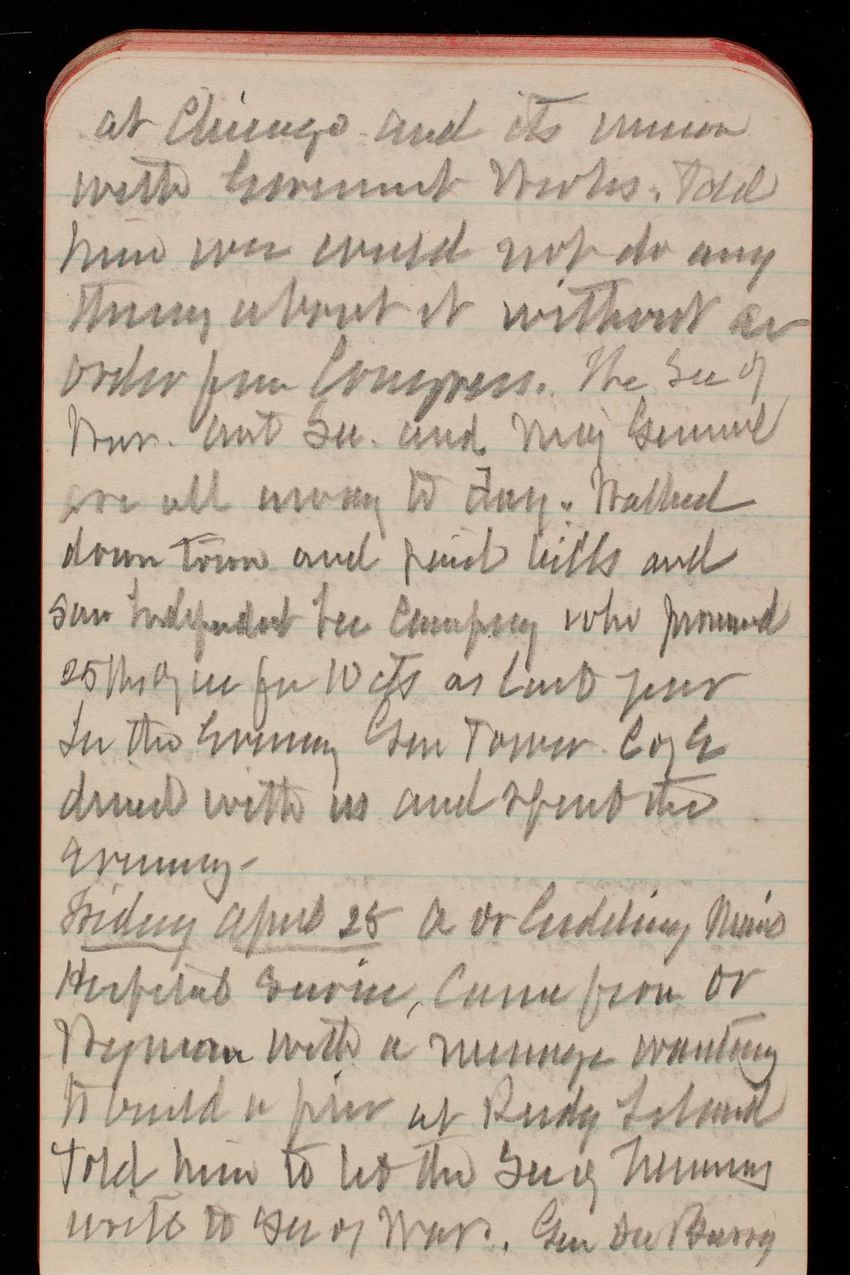 at Chicago and its union
with Government Works. Told
him we could not do any
thing about it without an
order from Congress. The Sec of
War. Asst Sec. and Maj General
are all away to day. Walked
down town and paid bills and
saw Independent Ice Company who promised
25 lbs of ice for 10 cts as last year
In the Evening Gen Tower. C of E
dined with us and spent the
evening.
Friday April 25 A Dr Marine
Hospital Service, Came from Dr
Wyman with a message wanting
to build a pier at Reedy Island
Told him to let the Sec of Treasury
write to Sec of War. Gen Du Barry